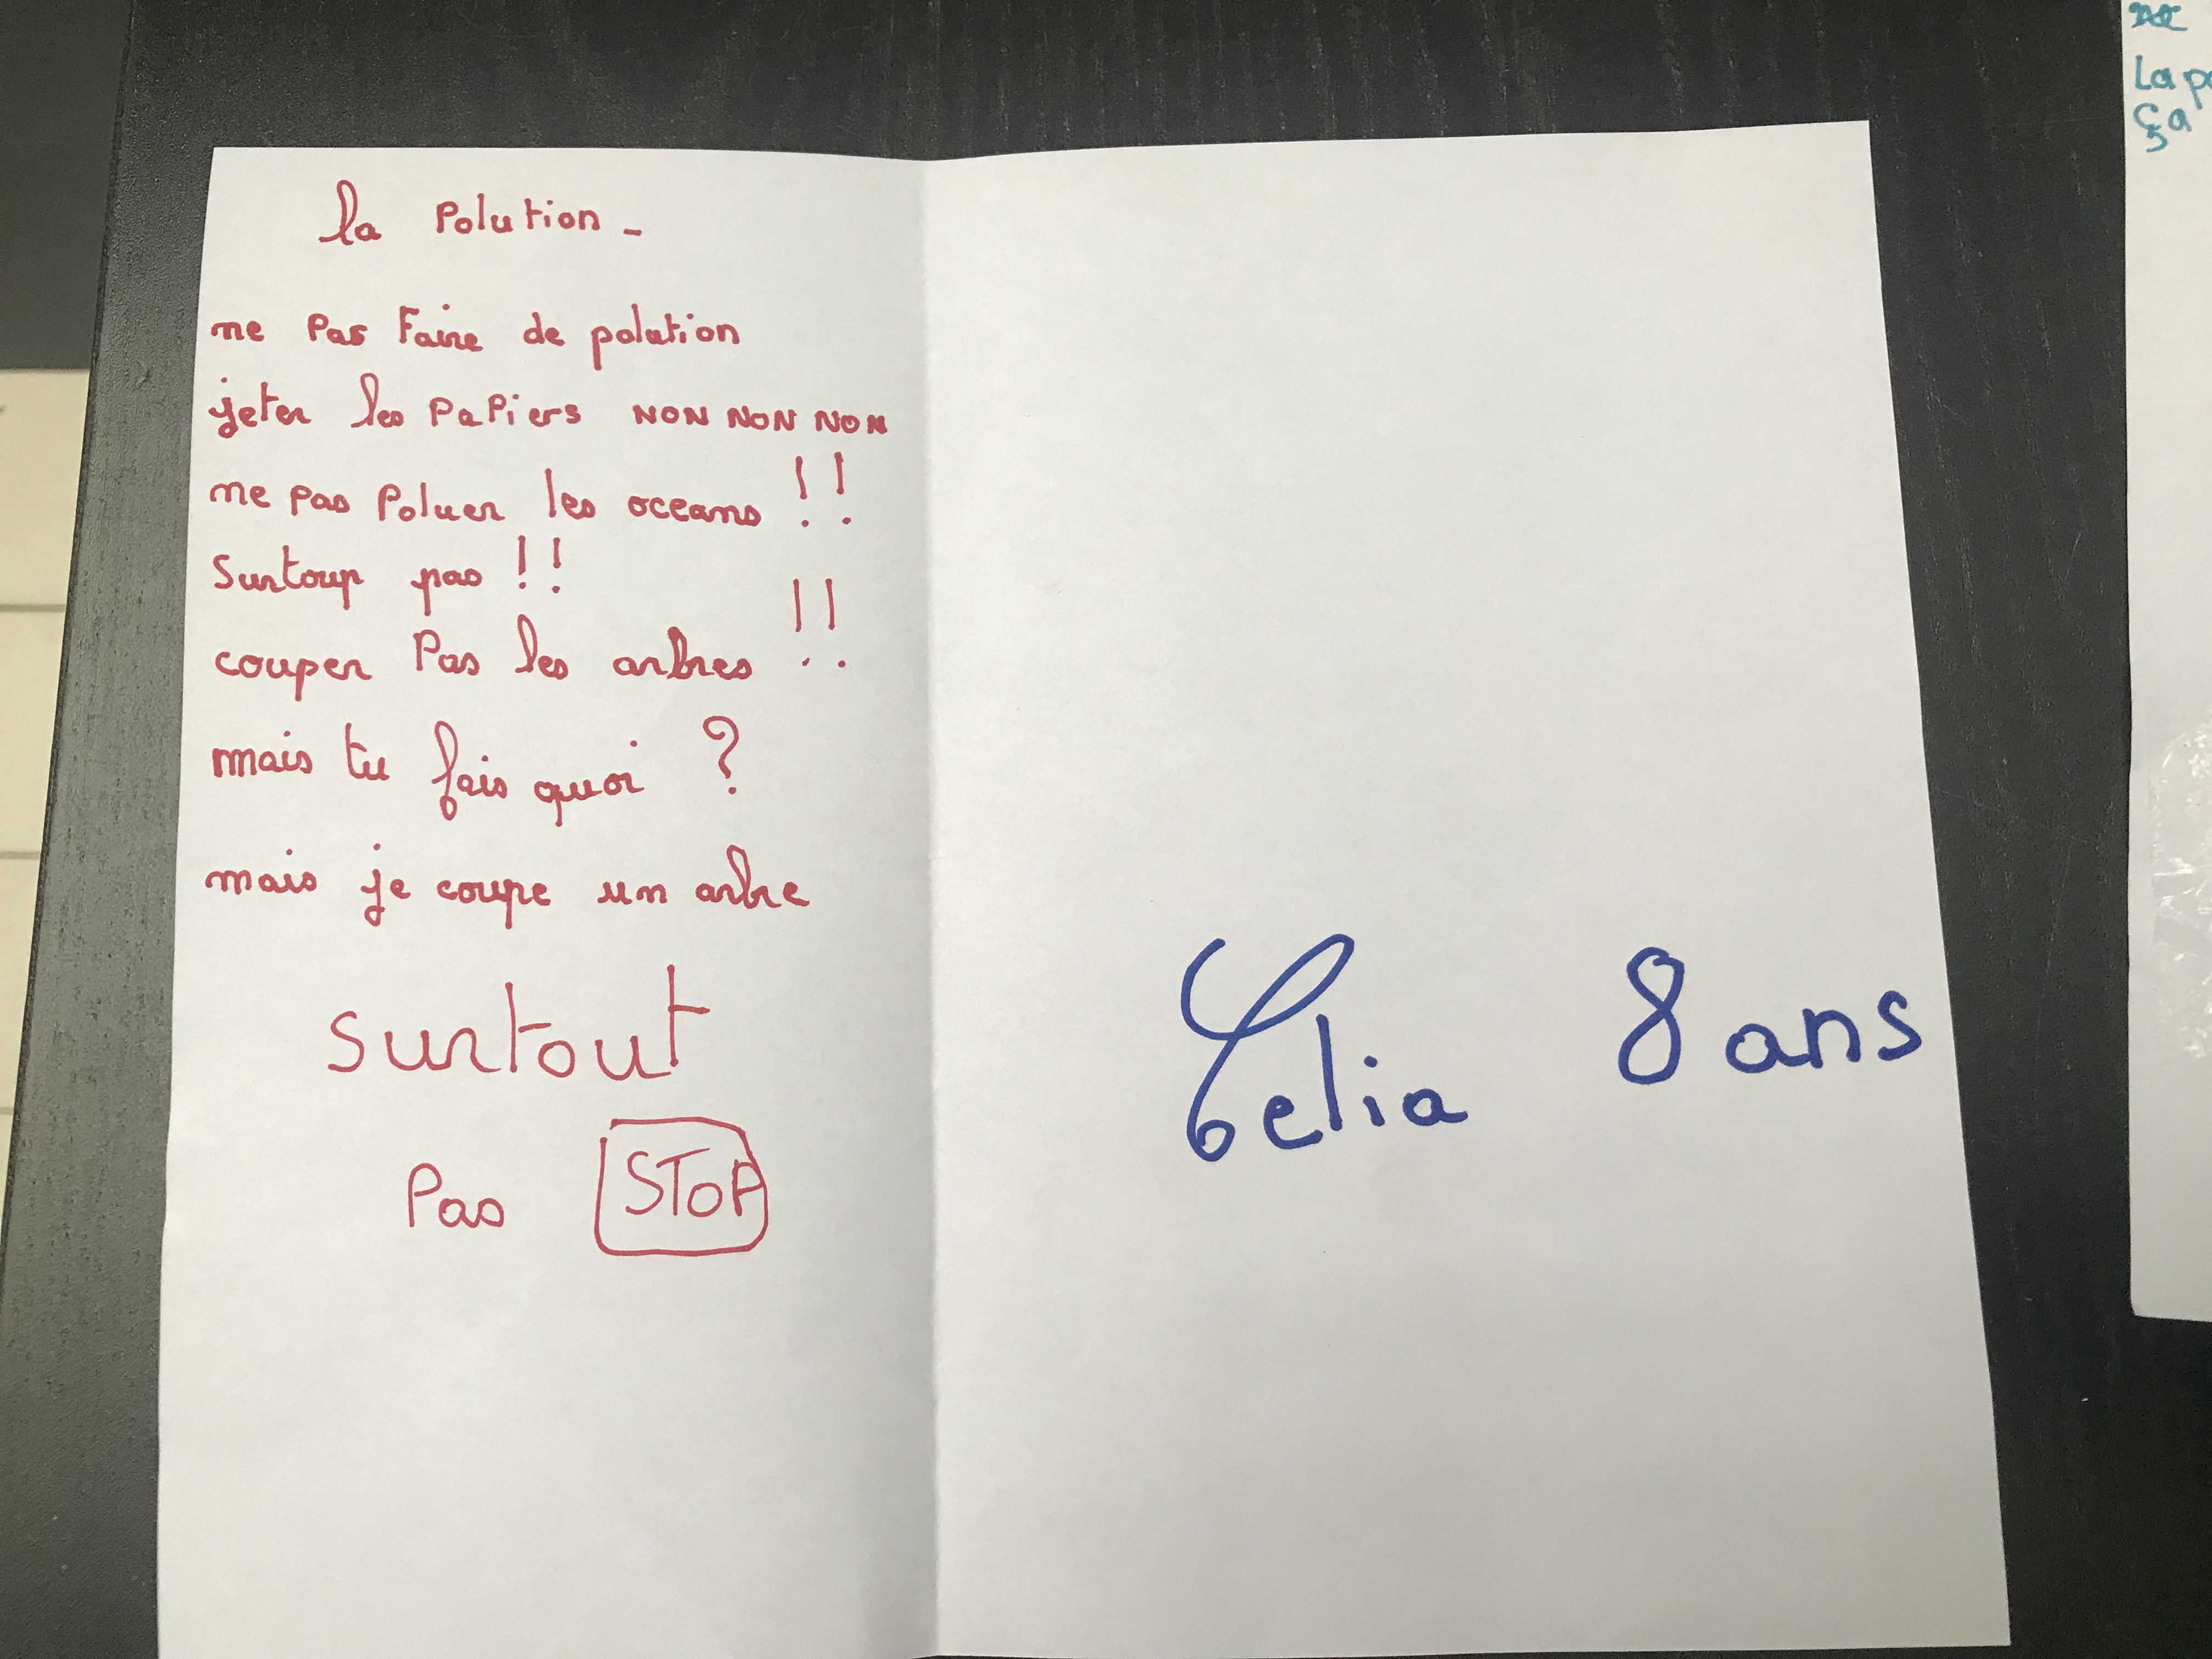 la Polution -
ne Pas Faire de polution
jeter les PaPiers NON NON NON
ne pas Poluer les oceans !!
Surtoup pas !!
couper Pas les arbres !!
mais tu fais quoi ?
mais je coupe un arbre
surtout
Pas STOP
Celia 8 ans
La
ça